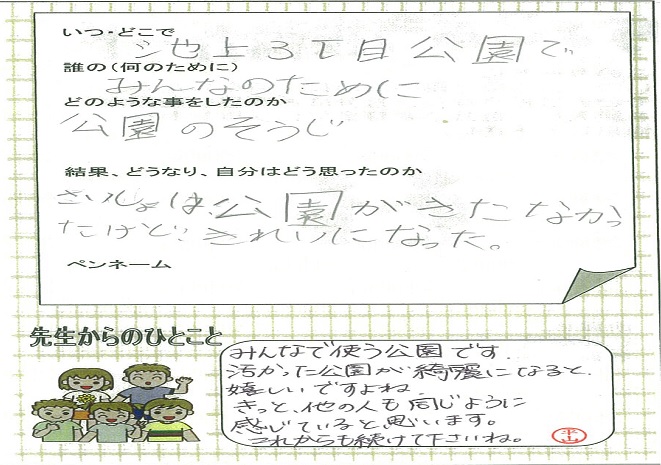 いつ・どこで
池上3丁目公園で
誰の(何のために)
みんなのために
どのような事をしたのか
公園のそうじ
結果、どうなり、自分はどう思ったのか
さいしょは、公園がきたなかっ
たけど、きれいになった。
ペンネーム
先生からのひとこと
みんなで使う公園です.
汚かった公園が綺麗になると、
嬉しいですよね.
きっと、他の人も同じように
感じていると思います。
これからも続けて下さいね。